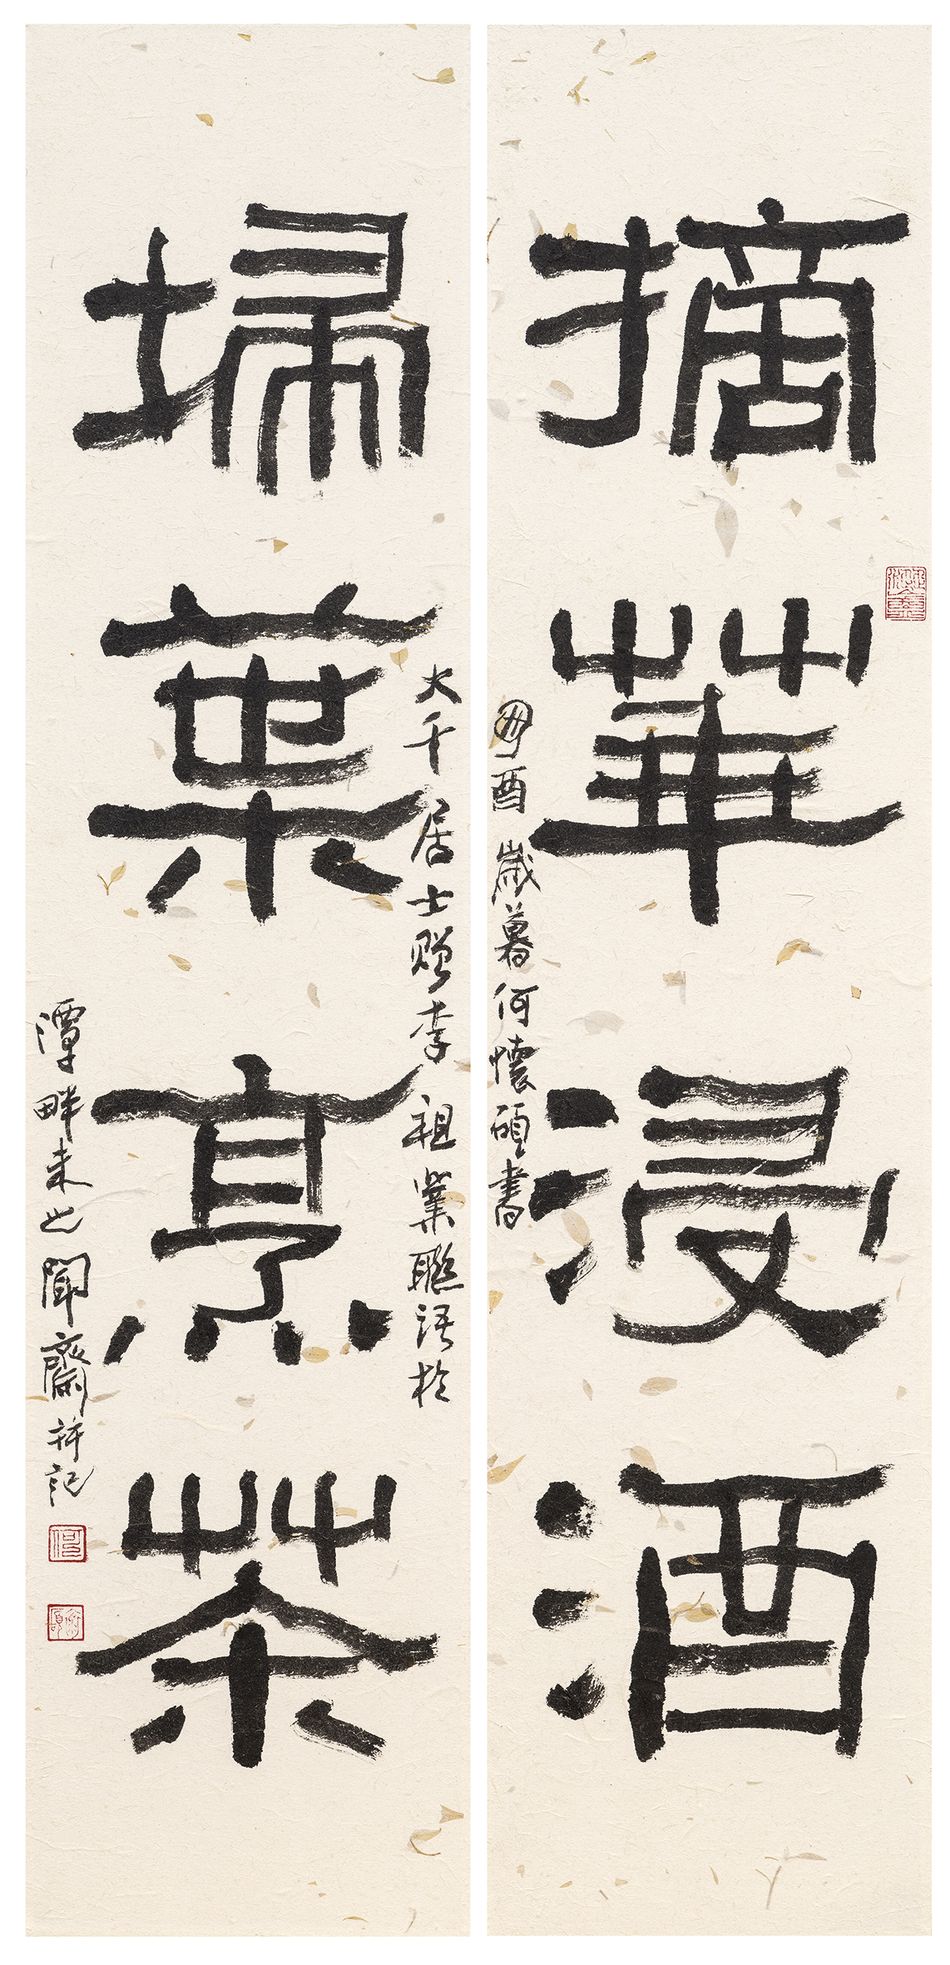 摘華浸酒
酉歲暮何懷碩書
埽葉烹茶
大千居士贈李祖業聯語於
潭畔未之聞齋并記